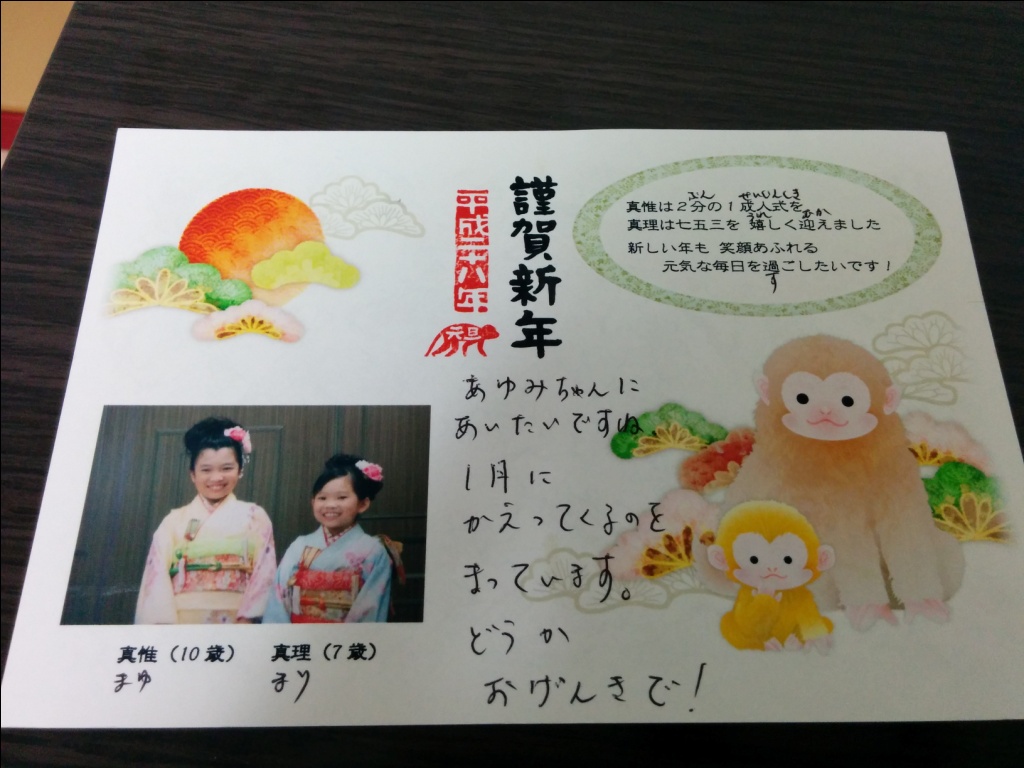 謹賀新年
平成二十八年
祝
ぶん せいじんしき
真惟は2分の1成人式を
うれ むか
真理は七五三を 嬉しく迎えました
新しい年も 笑顔あふれる
元気な毎日を過ごしたいです！
す
あゆみちゃんに
あいたいですね、
1月に
かえってくるのを
まっています。
どうか
おげんきで!
真惟（10歳） 真理（7歳）
まゆ まり